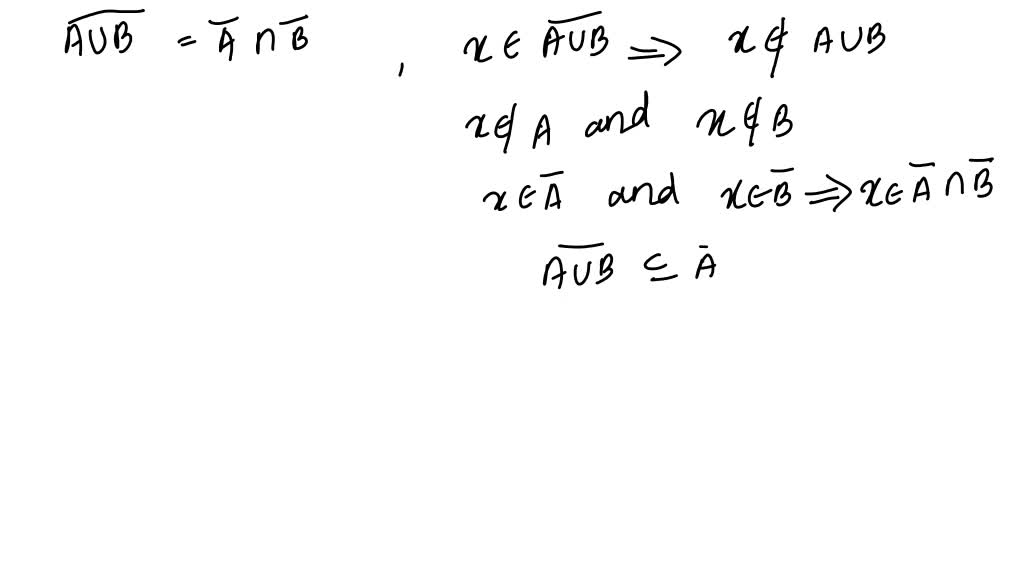 A̅∪̅B̅ = A̅ ∩ B̅ , x ∈ A̅∪̅B̅ ⟹ x ∉ A∪B
x ∉ A and x ∉ B
x ∈ A̅ and x ∈ B̅ ⟹ x ∈ A̅ ∩ B̅
A̅∪̅B̅ ⊆ A̅